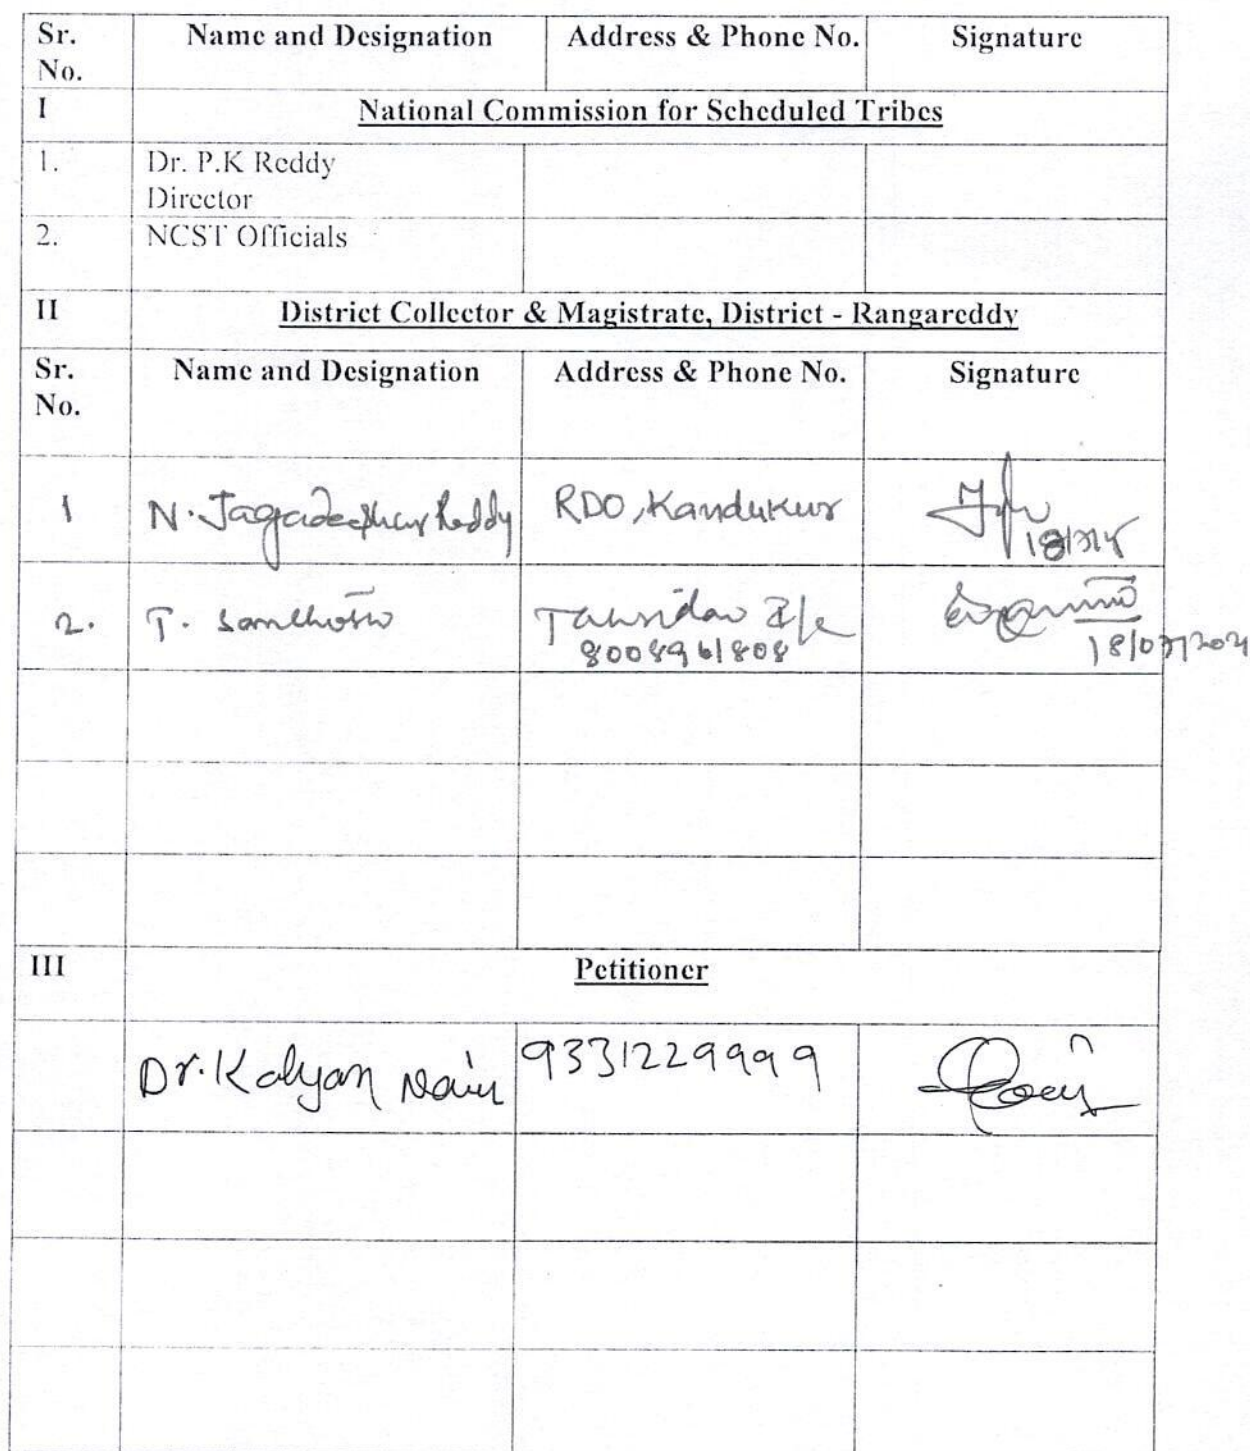 Sr. No. Name and Designation Address & Phone No. Signature
I National Commission for Scheduled Tribes
1. Dr. P.K Reddy
Director
2. NCST Officials
II District Collector & Magistrate, District - Rangareddy
Sr. No. Name and Designation Address & Phone No. Signature
1 N. Jagadeeshwar Reddy RDO, Kandukur
2. T. Santhosh
8008961808 18/07/2024
III Petitioner
Dr. Kalyan Naik 9331229999